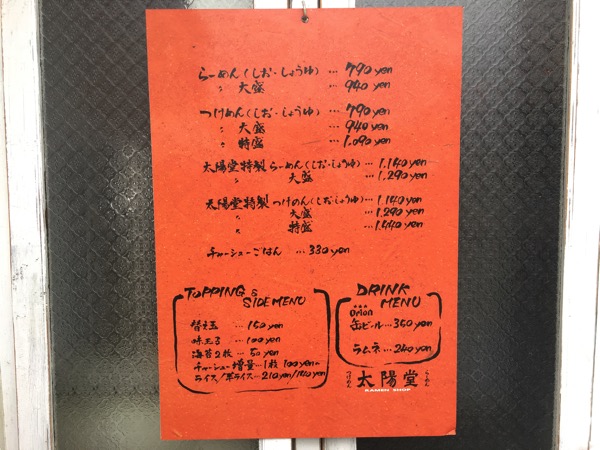 らーめん(しお・しょうゆ) … 790yen
〃 大盛 … 940yen
つけめん(しお・しょうゆ) … 790yen
〃 大盛 … 940yen
〃 特盛 … 1,090yen
太陽堂特製らーめん(しお・しょうゆ) … 1,140yen
〃 大盛 … 1,290yen
太陽堂特製つけめん(しお・しょうゆ) … 1,140yen
〃 大盛 … 1,290yen
〃 特盛 … 1,440yen
チャーシューごはん … 330yen
TOPPING & SIDE MENU
替え玉 … 150yen
味玉子 … 100yen
海苔2枚 … 50yen
チャーシュー増量…1枚 100yen〜
ライス/半ライス…210yen/140yen
DRINK MENU
Orion
缶ビール…350yen
ラムネ…240yen
つけめん 太陽堂 らーめん
RAMEN SHOP